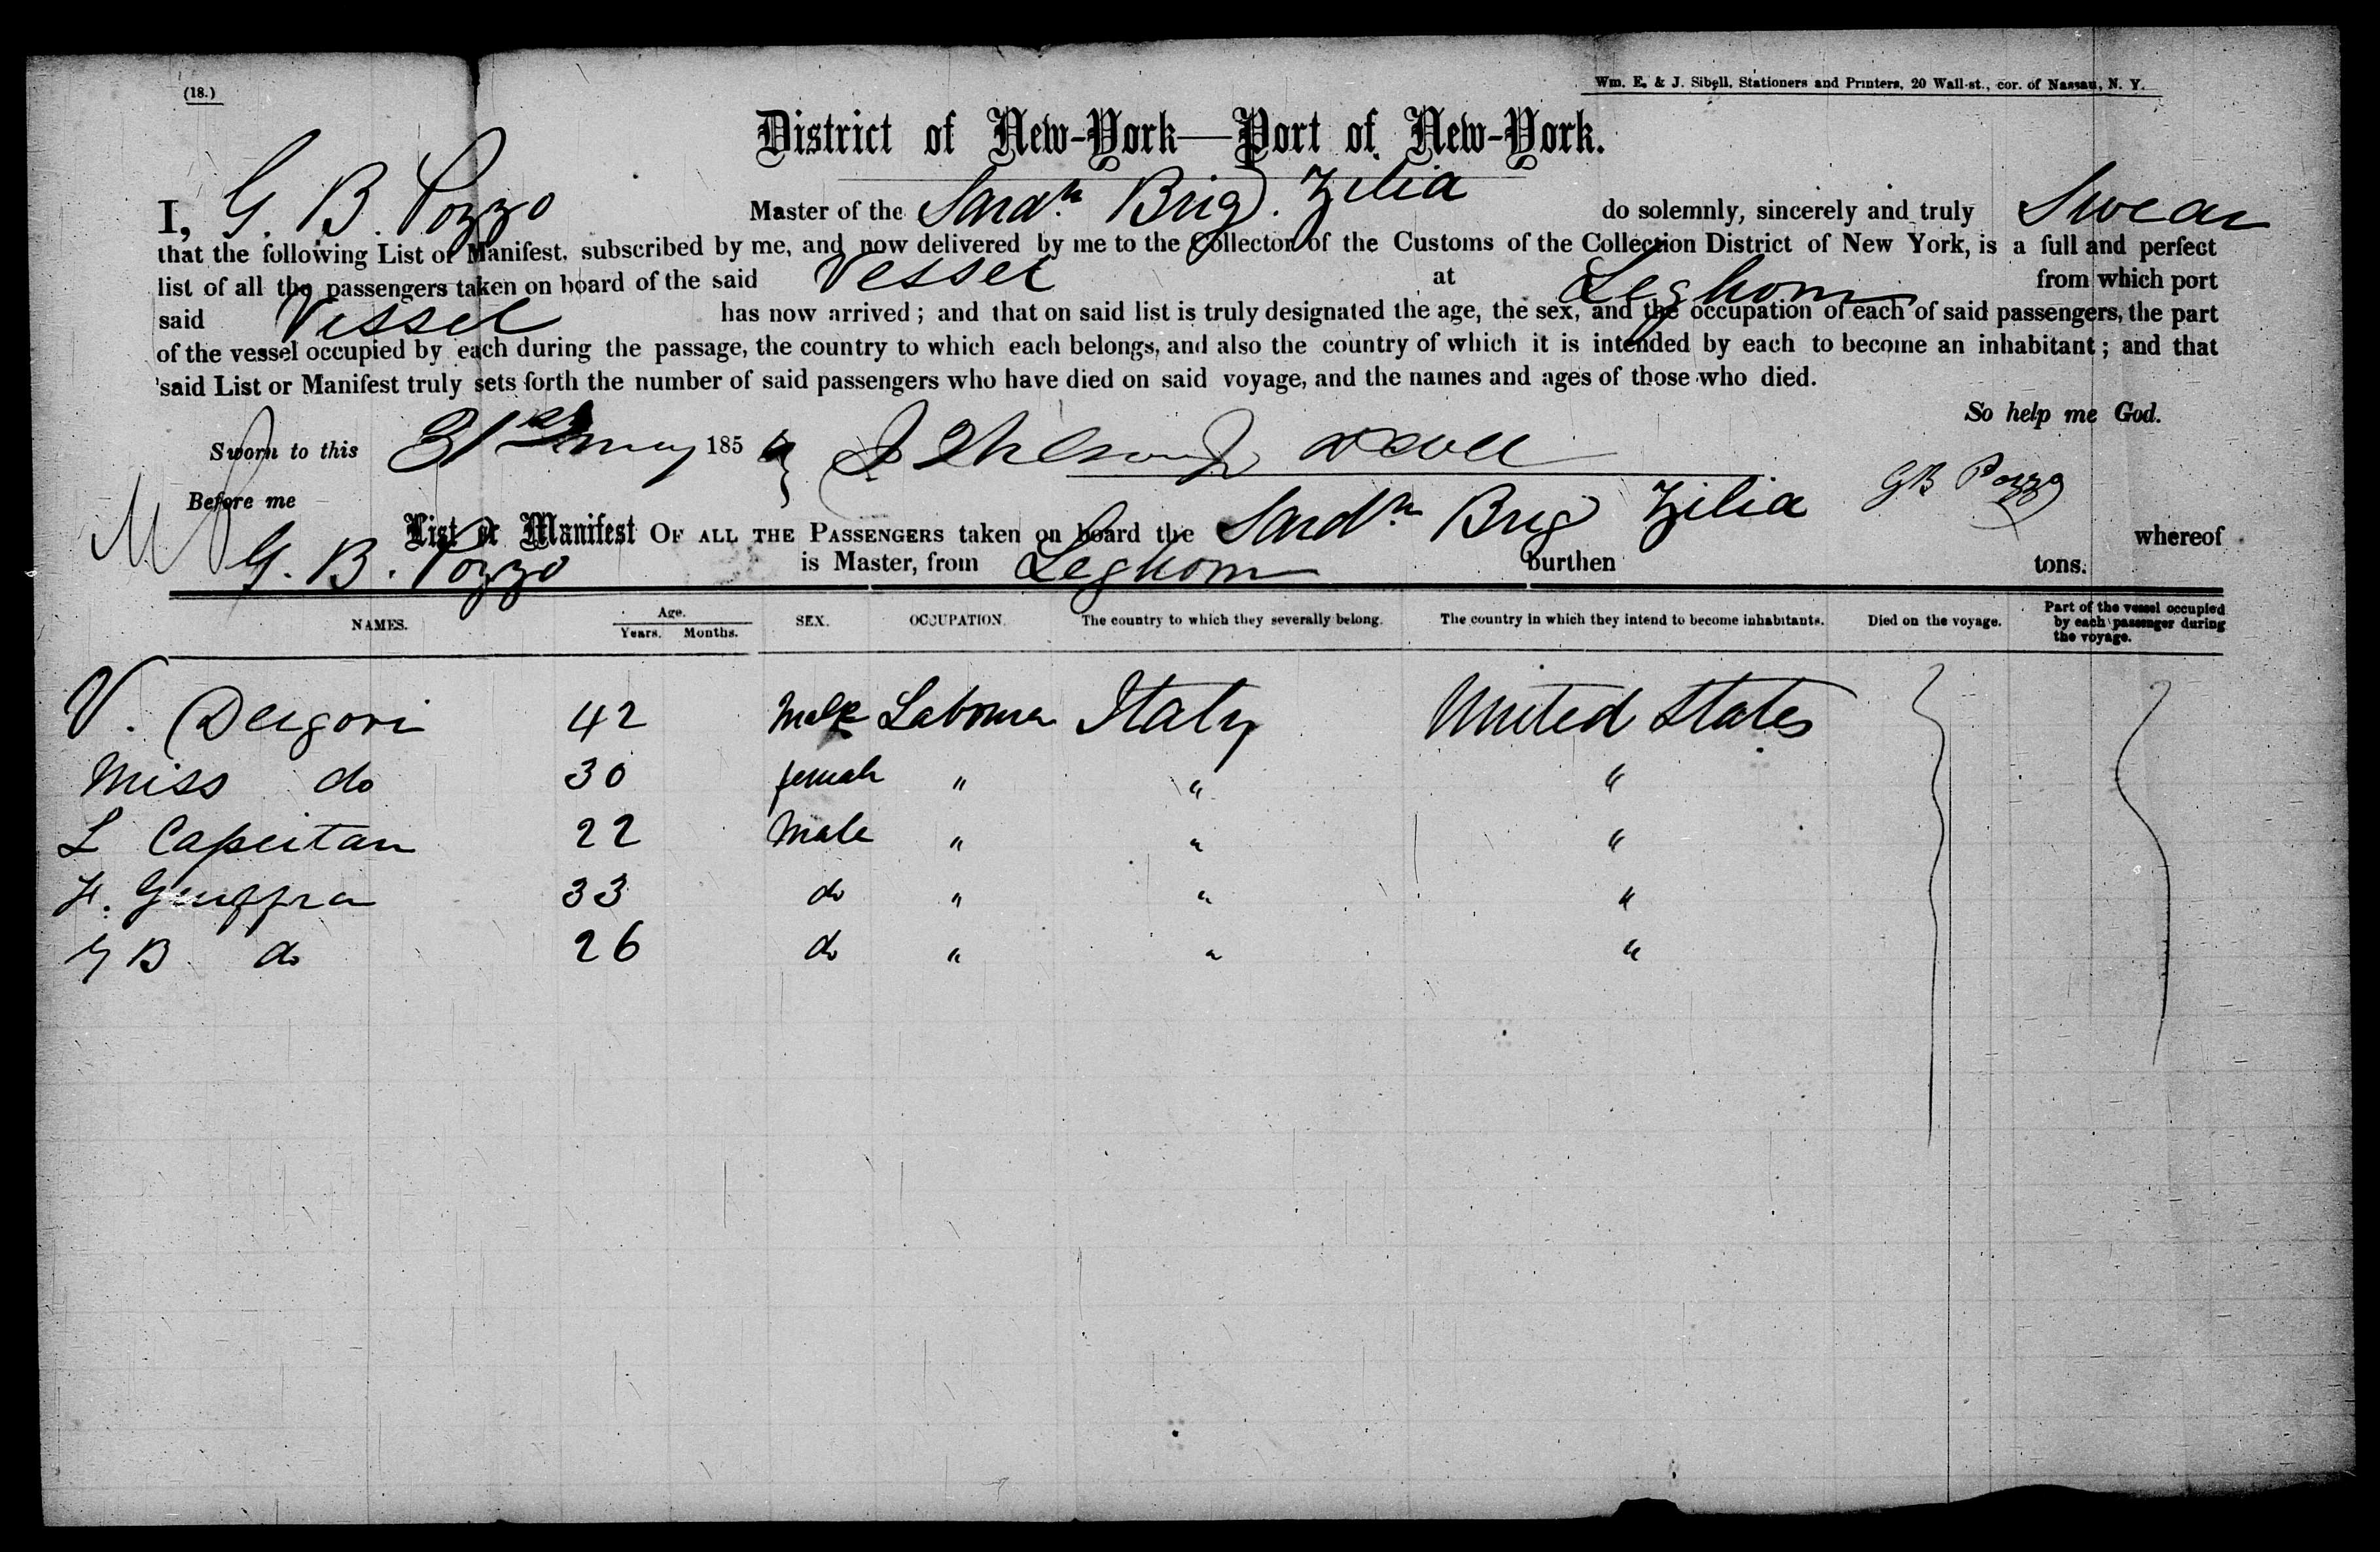 (18.)
Wm. E. & J. Sibell, Stationers and Printers, 20 Wall-st., cor. of Nassau, N. Y.
District of New-York—Port of New-York.
I, G. B. Pozzo Master of the Sardn. Brig. Zilia do solemnly, sincerely and truly Swear
that the following List or Manifest, subscribed by me, and now delivered by me to the Collector of the Customs of the Collection District of New York, is a full and perfect
list of all the passengers taken on board of the said Vessel at Leghorn from which port
said Vessel has now arrived; and that on said list is truly designated the age, the sex, and the occupation of each of said passengers, the part
of the vessel occupied by each during the passage, the country to which each belongs, and also the country of which it is intended by each to become an inhabitant; and that
said List or Manifest truly sets forth the number of said passengers who have died on said voyage, and the names and ages of those who died.
So help me God.
Sworn to this 31st May 185
Before me
GB Pozzo
List or Manifest OF ALL THE PASSENGERS taken on board the Sardn. Brig Zilia whereof
G. B. Pozzo is Master, from Leghorn burthen tons.
NAMES. Age. Years. Months. SEX. OCCUPATION. The country to which they severally belong. The country in which they intend to become inhabitants. Died on the voyage. Part of the vessel occupied by each passenger during the voyage.
V. 42 Male Labourer Italy United States
Miss do 30 female " " "
L Capeitan 22 Male " " "
33 do " " "
G B do 26 do " " "